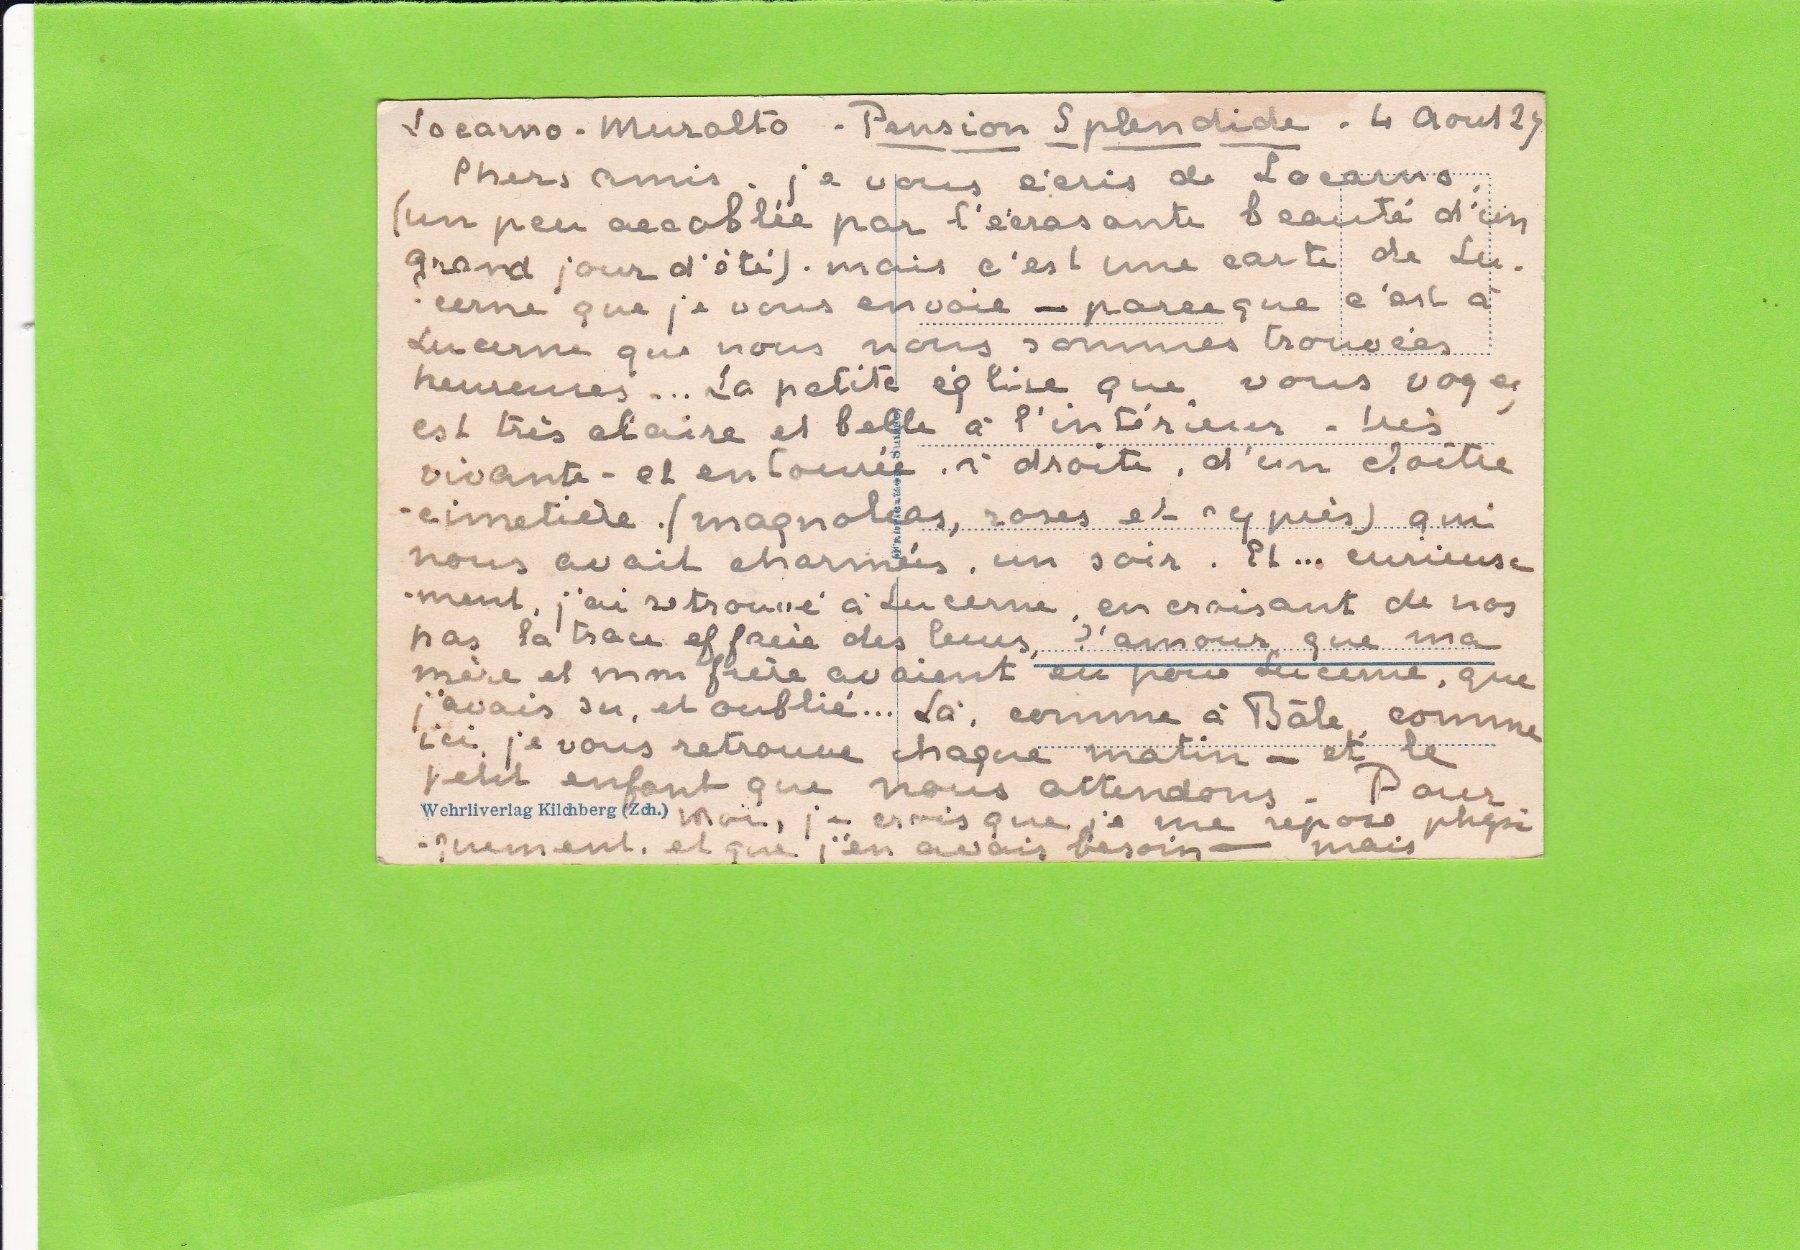 Locarno - Muralto - Pension Splendide - 4 Aout 29
Chers amis. je vous écris de Locarno,
(un peu accablée par l'écrasante beauté d'un
grand jour d'été). mais c'est une carte de Lu-
-cerne que je vous envoie — parceque c'est à
Lucerne que nous nous sommes trouvées
heureuses... La petite église que vous voyez
est très claire et belle à l'intérieur - très
vivante - et entourée, à droite, d'un cloître
-cimetière (magnolias, roses et cyprès) qui
nous avait charmées, un soir. Et... curieuse
-ment, j'ai retrouvé à Lucerne, en croisant de nos
pas la trace effacée des leurs, l'amour que ma
mère et mon frère avaient eu pour Lucerne, que
j'avais su, et oublié... Là, comme à Bâle, comme
ici, je vous retrouve chaque matin - et le
petit enfant que nous attendons - Pour
Wehrliverlag Kilchberg (Zch.)
moi, je crois que je me repose physi
-quement, et que j'en avais besoin — mais